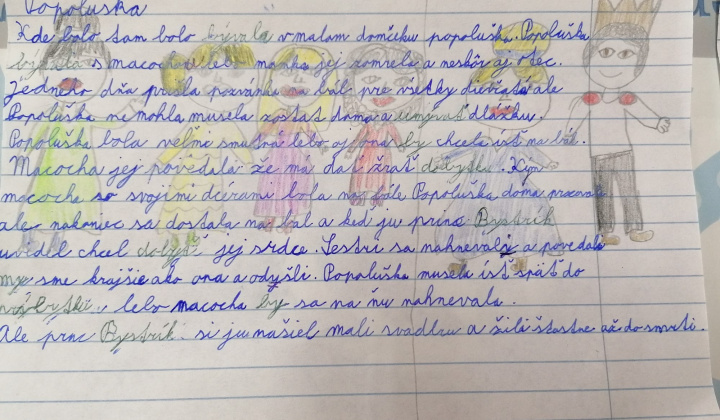 Popoluška
Kde bolo tam bolo bývala v malom domčeku popoluška. Popoluška
bývala s macochou lebo mamka jej zomrela a neskôr aj otec.
Jedneho dňa prišla pozvánka na bál pre všetky dievčatá ale
Popoluška ne mohla musela zostať doma a umývať dlážku.
Popoluška bola veľmi smutná lebo aj ona by chcela ísť na bál.
Macocha jej povedala že má dať žrať dobytku. Kým
macocha so svojimi dcérami bola na bále Popoluška doma pracovala
ale nakoniec sa dostala na bál a keď ju princ Bystrík
uvidel chcel dobyť jej srdce. Sestri sa nahnevali a povedali
my sme krajšie ako ona a odyšli. Popoluška musela ísť späť do
lebo macocha by sa na ňu nahnevala.
Ale princ Bystrík si ju našiel mali svadbu a žili štastne až do smrti.